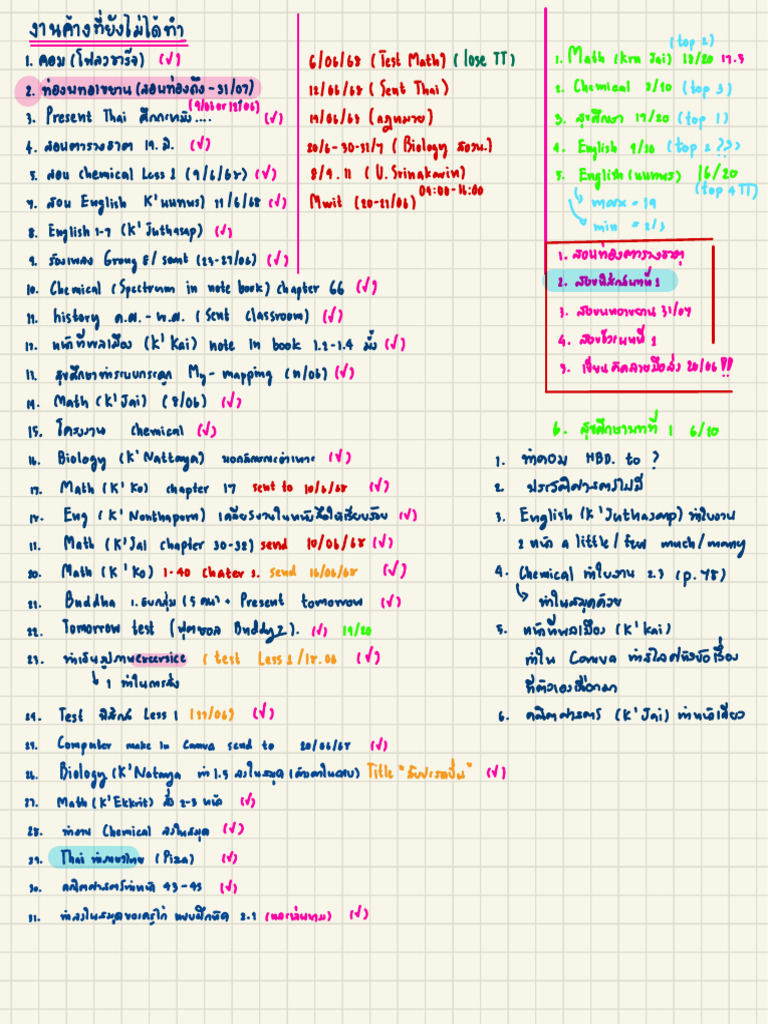 งานค้างที่ยังไม่ได้ทำ
1. คอม (โฟลวชาร์จ) (√)
2. ท่องบทอาขยาน (สอบท่องถึง - 31/07)
(9/06 or 12/06)
3. Present Thai ศึกกะหมัง.... (√)
4. สอบตารางธาตุ 19. มิ. (√)
5. สอบ Chemical Less 1 (9/6/68) (√)
7. สอบ English K'นนทพร) 11/6/68 (√)
8. English 1-7 (K'Juthasap) (√)
9. ร้องเพลง Group 8/ sent (23-27/06) (√)
10. Chemical (Spectrum in note book) chapter 66 (√)
11. history ค.ศ. - พ.ศ. (Sent Classroom) (√)
12. หน้าที่พลเมือง (K'Kai) note in book 1.2-1.4 (√)
13. สุขศึกษาทำระบบกระดูก My-mapping (11/06) (√)
14. Math (K'Jai) (8/06) (√)
15. โครงงาน chemical (√)
16. Biology (K'Nattaya) (√)
17. Math (K'Ko) chapter 17 sent to 10/6/68 (√)
18. Eng (K'Nonthaporn) เคลียร์งานในหนังสือให้เรียบร้อย (√)
19. Math (K'Jai chapter 30-32) send 10/06/68 (√)
20. Math (K'Ko) 1-40 Chater 2. send 16/06/68 (√)
21. Buddha 1. จบกลุ่ม (5 คน) + Present tomorrow (√)
22. Tomorrow test (ฟุตบอล Buddy 2). (√) 19/20
23. exersice (test Less 1/18.06 (√)
↳ 1 ทำในการสั่ง
24. Test ฟิสิกส์ Less 1 (17/06) (√)
25. Computer make in Canva send to 20/06/68 (√)
26. Biology (K'Nataya ทำ 1.5 ลงในสมุด Title "สับปะรดปั่น" (√)
27. Math (K'Ekkrit) สั่ง 2-3 หน้า (√)
28. ทำงาน Chemical ลงในสมุด (√)
29. Thai ทำภาษาไทย (Piza) (√)
30. คณิตศาสตร์ทำหน้า 43-45 (√)
31. ทำลงในสมุดของครูไก่ แบบฝึกหัด 2.1 (√)
6/06/68 (Test Math) (lose TT)
12/06/68 (Sent Thai)
19/06/68 (กฎหมาย)
20/6-30-31/7 (Biology สอวน.)
8/9.11 (U.Srinakarin)
09:00-16:00
Mwit (20-21/06)
(top 2)
1. Math (kru Jai) 18/20 17.5
2. Chemical 8/20 (top 3)
3. สุขศึกษา 19/20 (top 1)
4. English 9/20 (top 2 ??)
5. English (นนทพร) 16/20
(top 4 TT)
↳ max = 19
↳ min = 2/3
1. สอบท่องตารางธาตุ
2. สอบฟิสิกส์บทที่ 1
3. สอบบทอาขยาน 31/07
4. สอบชีวะบทที่ 1
5. เขียนคัดลายมือส่ง 20/06 !!
6. สุขศึกษาบทที่ 1 6/20
1. ทำคอม HBD. to ?
2. ประวัติศาสตร์ไม่มี
3. English (K'Juthasap) ทำใบงาน
2 หน้า a little/few much/many
4. Chemical ทำใบงาน 2.3 (p.48)
↳ ทำในสมุดด้วย
5. หน้าที่พลเมือง (K'kai)
ทำใน Canva
ที่ตัวเองเลือกมา
6. คณิตศาสตร์ (K'Jai) ทำหน้าเดียว